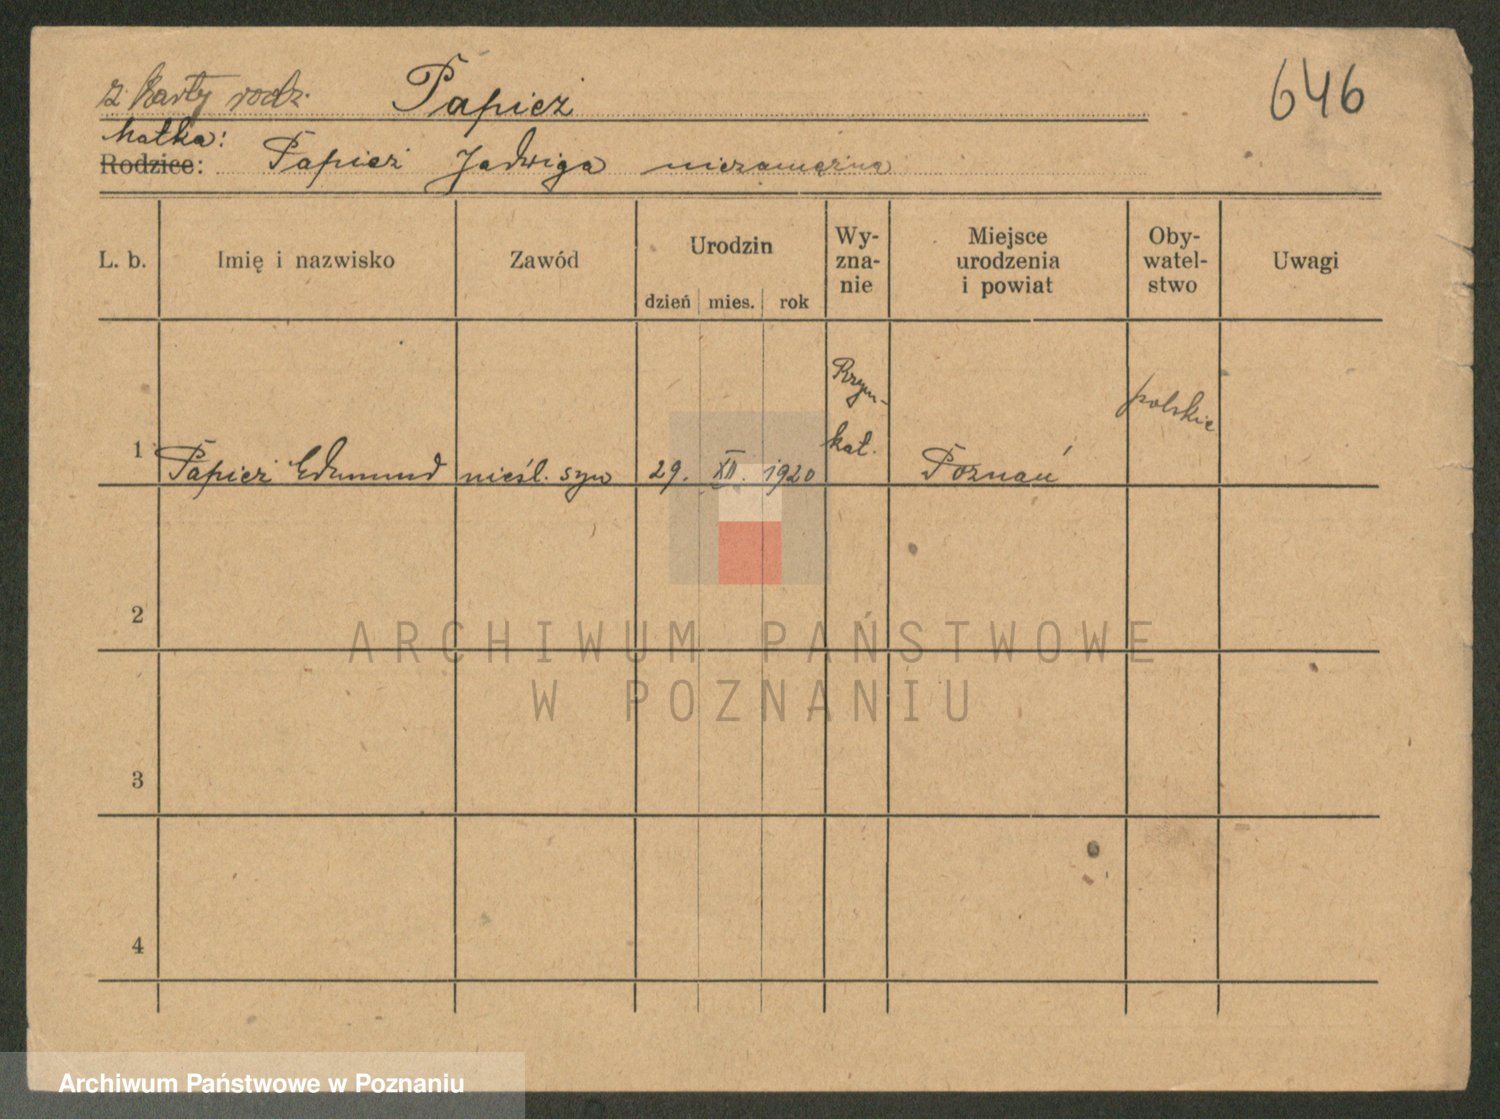 z Karty rodz. Papież 646
Matka:
Rodzice: Papież Jadwiga niezamężna
L. b. Imię i nazwisko Zawód Urodzin dzień mies. rok Wy-
zna-
nie Miejsce
urodzenia
i powiat Oby-
watel-
stwo Uwagi
1 Papież Edmund nieśl. syn 29. XII. 1920 Rzym-
kat. Poznań polskie
2
3
4
ARCHIWUM PAŃSTWOWE
W POZNANIU
Archiwum Państwowe w Poznaniu